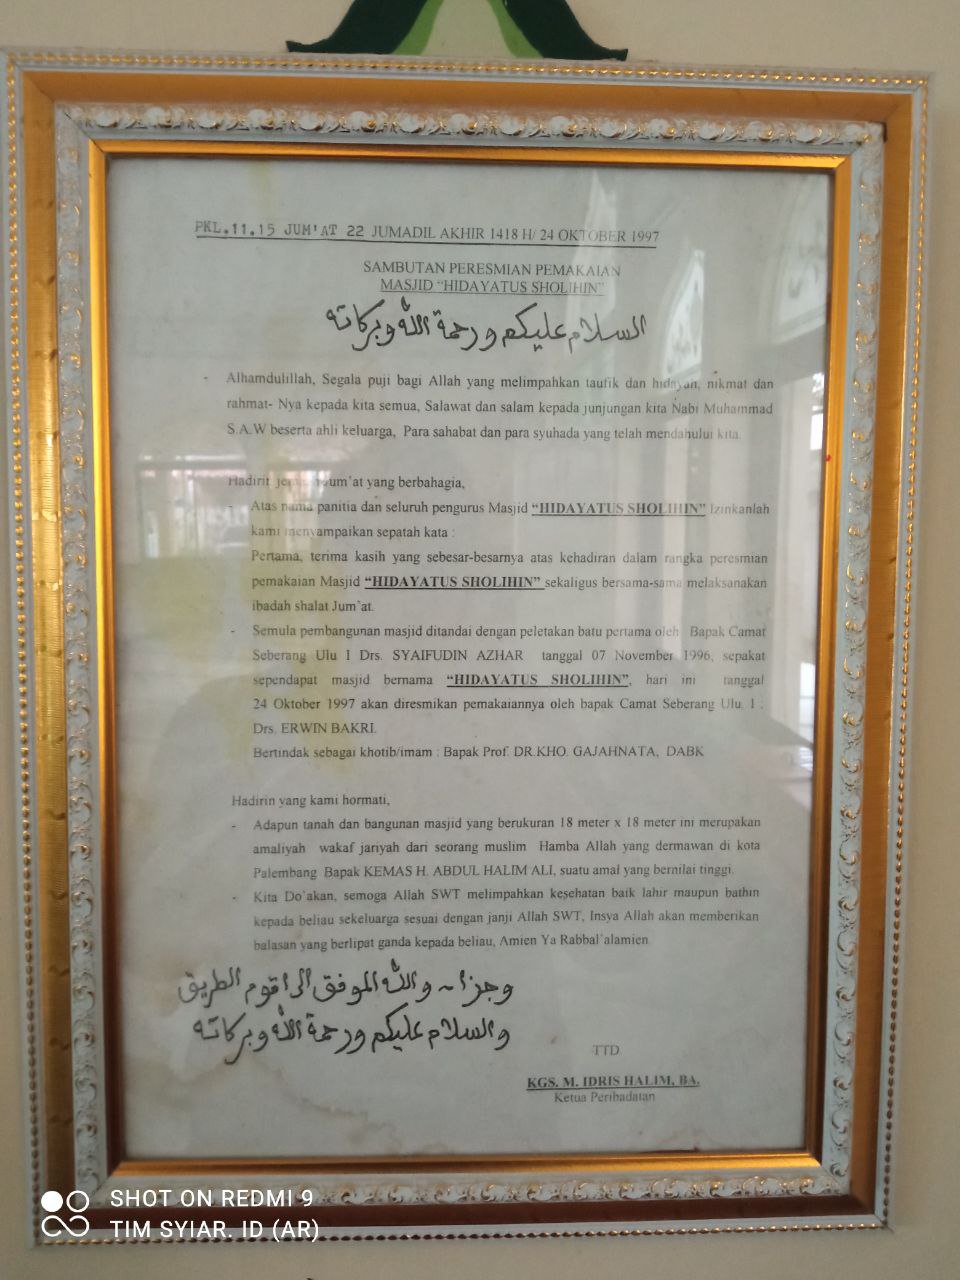 PKL.11.15 JUM'AT 22 JUMADIL AKHIR 1418 H/ 24 OKTOBER 1997
SAMBUTAN PERESMIAN PEMAKAIAN
MASJID "HIDAYATUS SHOLIHIN"
السلام عليكم ورحمة الله وبركاته
- Alhamdulillah, Segala puji bagi Allah yang melimpahkan taufik dan hidayah, nikmat dan
rahmat- Nya kepada kita semua, Salawat dan salam kepada junjungan kita Nabi Muhammad
S.A.W beserta ahli keluarga, Para sahabat dan para syuhada yang telah mendahului kita.
Hadirit Jum'at yang berbahagia,
- Atas nama panitia dan seluruh pengurus Masjid "HIDAYATUS SHOLIHIN" Izinkanlah
kami menyampaikan sepatah kata :
Pertama, terima kasih yang sebesar-besarnya atas kehadiran dalam rangka peresmian
pemakaian Masjid "HIDAYATUS SHOLIHIN" sekaligus bersama-sama melaksanakan
ibadah shalat Jum'at.
- Semula pembangunan masjid ditandai dengan peletakan batu pertama oleh Bapak Camat
Seberang Ulu I Drs. SYAIFUDIN AZHAR tanggal 07 November 1996, sepakat
sependapat masjid bernama "HIDAYATUS SHOLIHIN", hari ini tanggal
24 Oktober 1997 akan diresmikan pemakaiannya oleh bapak Camat Seberang Ulu I :
Drs. ERWIN BAKRI.
Bertindak sebagai khotib/imam : Bapak Prof. DR.KHO. GAJAHNATA, DABK
Hadirin yang kami hormati,
- Adapun tanah dan bangunan masjid yang berukuran 18 meter x 18 meter ini merupakan
amaliyah wakaf jariyah dari seorang muslim Hamba Allah yang dermawan di kota
Palembang Bapak KEMAS H. ABDUL HALIM ALI, suatu amal yang bernilai tinggi.
- Kita Do'akan, semoga Allah SWT melimpahkan kesehatan baik lahir maupun bathin
kepada beliau sekeluarga sesuai dengan janji Allah SWT, Insya Allah akan memberikan
balasan yang berlipat ganda kepada beliau, Amien Ya Rabbal'alamien.
والله الموفق الى اقوم الطريق
والسلام عليكم ورحمة الله وبركاته
TTD
KGS. M. IDRIS HALIM, BA.
Ketua Peribadatan
SHOT ON REDMI 9
TIM SYIAR. ID (AR)